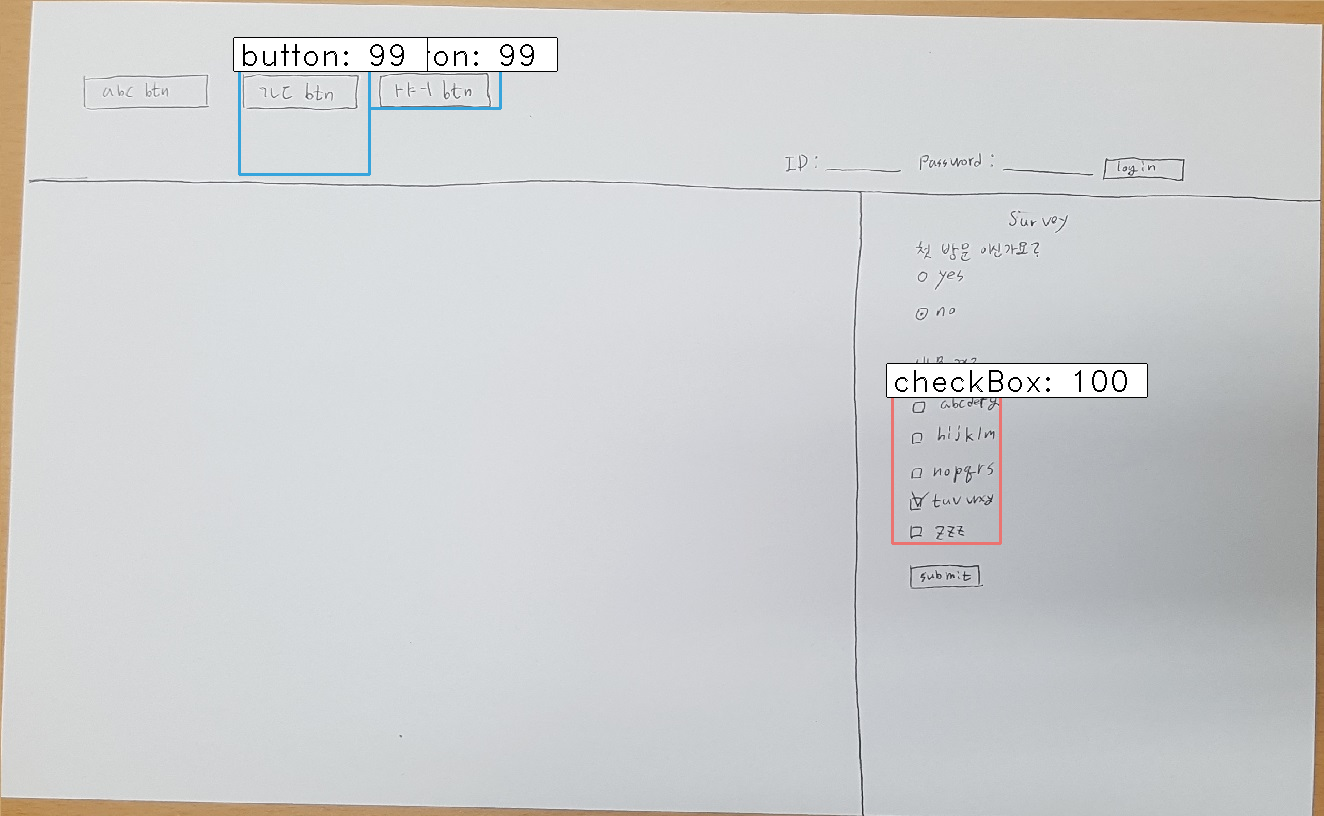 button: 99 on: 99
abc btn ㄱㄴㄷ btn ㅏㅑㅓ btn
ID: Password: login
Survey
첫 방문 이신가요?
yes
no
checkBox: 100
abcdefg
hijklm
nopqrs
tuvwxy
zzz
submit